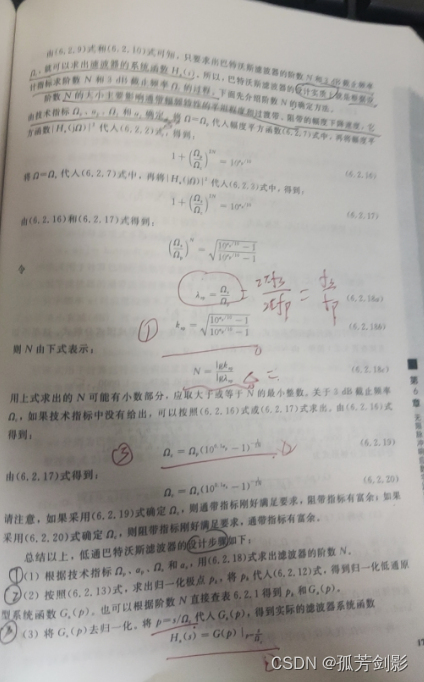 由(6.2.9)式和(6.2.10)式可知，只要求出巴特沃斯滤波器的阶数 N 和 3 dB 截止频率
Ωc，就可以求出滤波器的系统函数 Ha(s)。所以，巴特沃斯滤波器的设计实质上就是根据设
计指标求阶数 N 和 3 dB 截止频率 Ωc 的过程。下面先介绍阶数 N 的确定方法。
阶数 N 的大小主要影响通带幅频特性的平坦程度和过渡带、阻带的幅度下降速度，它
由技术指标 Ωp、αp、Ωs 和 αs 确定。将 Ω=Ωp 代入幅度平方函数(6.2.7)式中，再将幅度平
方函数|Ha(jΩ)|² 代入(6.2.2)式，得到：
1+(Ωp/Ωc)^2N = 10^(αp/10) (6.2.16)
将 Ω=Ωs 代入(6.2.7)式中，再将|Ha(jΩ)|² 代入(6.2.3)式中，得到：
1+(Ωs/Ωc)^2N = 10^(αs/10) (6.2.17)
由(6.2.16)和(6.2.17)式得到：
令
ksp = Ωs/Ωp = 2πfs/2πfp = fs/fp (6.2.18a)
① (6.2.18b)
则 N 由下式表示：
N = lgksp/lgλsp (6.2.18c)
用上式求出的 N 可能有小数部分，应取大于或等于 N 的最小整数。关于 3 dB 截止频率
Ωc，如果技术指标中没有给出，可以按照(6.2.16)式或(6.2.17)式求出。由(6.2.16)式
得到：
③ Ωc = Ωp(10^(0.1αp) −1)^(−1/2N) (6.2.19)
由(6.2.17)式得到：
Ωc = Ωs(10^(0.1αs) −1)^(−1/2N) (6.2.20)
请注意，如果采用(6.2.19)式确定 Ωc，则通带指标刚好满足要求，阻带指标有富余；如果
采用(6.2.20)式确定 Ωc，则阻带指标刚好满足要求，通带指标有富余。
总结以上，低通巴特沃斯滤波器的设计步骤如下：
(1) 根据技术指标 Ωp、αp、Ωs 和 αs，用(6.2.18)式求出滤波器的阶数 N。
(2) 按照(6.2.13)式，求出归一化极点 pk，将 pk 代入(6.2.12)式，得到归一化低通原
型系统函数 Ga(p)。也可以根据阶数 N 直接查表 6.2.1 得到 pk 和 Ga(p)。
(3) 将 Ga(p)去归一化。将 p=s/Ωc 代入 Ga(p)，得到实际的滤波器系统函数
Ha(s)=G(p)|p=s/Ωc
第
6
章
CSDN @孤芳剑影